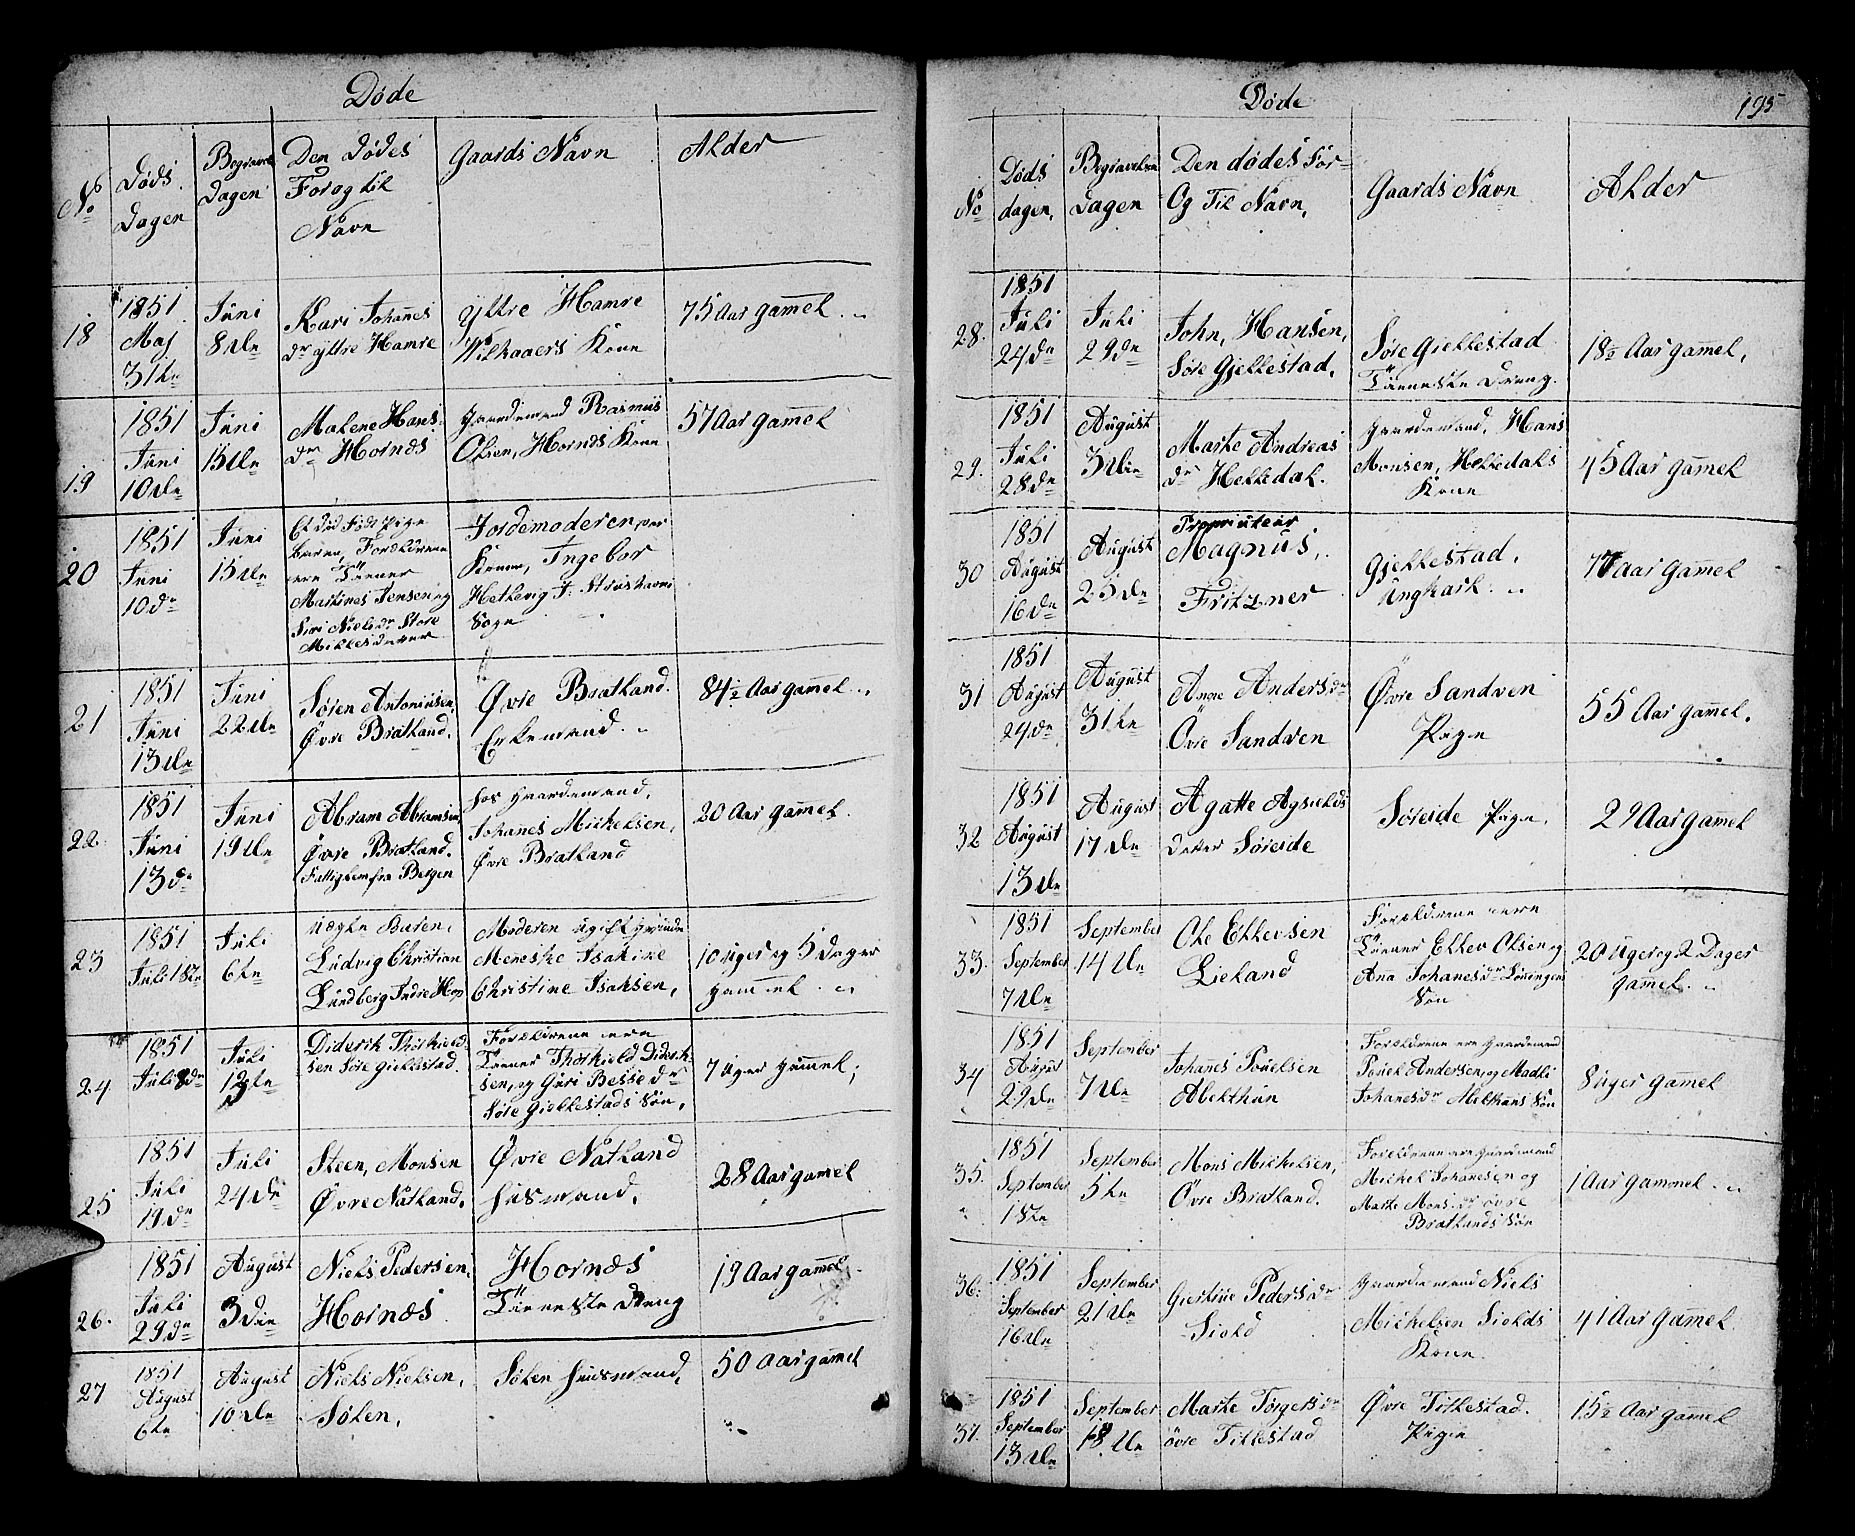 Døde
No
Døds
Dagen
Begravels
Dagen
Den Dødes
For og til
Navn
Gaards Navn
Alder
18
1851
Maj
31te
Juni
8de
Kari Johannes
dr Yttre Hamre
Yttre Hamre
Vilkaaers Kone
75 Aar gammel
19
1851
Juni
10de
Juni
15de
Malene Hans
dr Hornæs
Gaardemand Rasmus
Olsen, Hornæs Kone
57 Aar gammel
20
1851
Juni
10de
Juni
15de
Et død Født Pige
barn, Forældrene
ere Tiener
Martines Jensen og
Siri Nielsdr Store
Mikkelsdaven
Jordemoderen per
Kone, Ingebor
Helkevig
Sogn
21
1851
Juni
13de
Juni
22de
Søren Antoniusen,
Øvre Bratland.
Øvre Bratland.
Enkemand.
84½ Aar gammel
22
1851
Juni
13de
Juni
19de
Abram Abramsen
Øvre Bratland.
Fattiglem fra Bergen
hos Gaardemand,
Johanes Mickelsen,
Øvre Bratland
20 Aar gammel.
23
1851
Juli 1ste
Juli
6te
Uægte Barn,
Ludvig Christian
Lundberg Indre Hop
Moderen ugift Qvinde
Meneske Isakine
Christine Isaksen,
10 uger og 5 Dager
gammel
24
1851
Juli 8de
Juli
13de
Diderik Thorkield-
sen Søre Gielkestad.
Forældrene ere
Tiener Thorkield Diderik-
sen, og Guri Besse dr
Søre Gielkestads Søn,
7 Uger gammel;
25
1851
Juli
19de
Juli
24de
Steen, Monsen
Øvre Natland.
Øvre Natland
Husmand.
28 Aar gamel
26.
1851
Juli
29de
August
3die
Niels Pedersen,
Hornæs
Hornæs
Tieneste dreng
19 Aar gammel
27
1851
August
6te
August
10de
Niels Nielsen,
Sølen,
Sølen Huusmand,
50 Aar gammel
Døde
195
No
Døds
dagen,
Begravelsen
Dagen
Den dødes For-
Og Til Navn,
Gaards Navn
Alder
28.
1851
Juli
24de
Juli
29de
John, Hansen,
Søre Gjellestad,
Søre Giellestad
Tieneste Dreng.
18½ Aar gamel,
29.
1851
Juli
28de
August
3die
Marte Andreas
dr Helledal.
Gaardemand, Hans
Monsen, Helledals
Kone
45 Aar gammel
30
1851
August
16de
August
25de
Propriuteur
Magnus,
Fritzner
Gjellestad,
Ungkarl
77 Aar gammel
31
1851
August
24de
August
31te
Anne Andersdr
Övre Sandven
Øvre Sandven
Pige
55 Aar gammel.
32
1851
August
13de
August
17de
Agatte
Datter Søreide
Søreide Pige,
29 Aar gamel
33.
1851
September
7de
September
14de
Ole Ellevsen
Lieland
Forældrene ere
Tiener Ellev Olsen og
Ana Johanesdr
Søn
20 uger og 2 Dager
gammel
34
1851
August
29de
September
7de
Johannes Pouelsen
Abelthun
Forældrene ere Gaardemand
Pouel Andersen, og Madli
Johanesdr Abelthuns Søn
8 uger gammel
35.
1851
September
1ste
September
5te
Mons Mickelsen,
Øvre Bratland.
Forældrene ere Gaardemand
Mickel Johanesen og
Marte Monsdr øvre
Bratlands Søn
1 Aar gammel
36.
1851
September
16de
September
21de
Giertrue Pedersdr
Siold
Gaardemand Niels
Mickelsen Siolds
Kone.
41 Aar Gammel
37.
1851
September
13de
September
18de
Marte Torgersdr
øvre Titlestad
Øvre Titlestad.
Pige
15½ Aar gammel